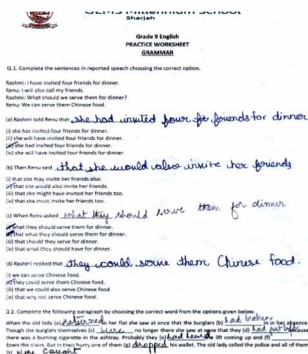 GEMS Millennium School
Sharjah
Grade 9 English
PRACTICE WORKSHEET
GRAMMAR
Q.1. Complete the sentences in reported speech choosing the correct option.
Rashmi: I have invited four friends for dinner.
Renu: I will also call my friends.
Rashmi: What should we serve them for dinner?
Renu: We can serve them Chinese food.
(a) Rashmi told Renu that she had invited four friends for dinner
(i) she has invited four friends for dinner.
(ii) she will have invited four friends for dinner.
she had invited four friends for dinner.
(iv) she will have invited four friends for dinner.
(b) Then Renu said that she would also invite her friends
(i) that she may invite her friends also.
that she would also invite her friends.
(iii) that she might have invited her friends too.
(iv) that she must invite her friends too.
(c) When Renu asked what they should serve them for dinner
what they should serve them for dinner.
that what they should serve them for dinner.
(iii) that should they serve for dinner.
(iv) that what they should have for dinner.
(d) Rashmi replied that they could serve them Chinese food.
(i) we can serve Chinese food.
they could serve them Chinese food.
(iii) that we could also serve Chinese food.
(iv) that why not serve Chinese food.
Complete the following paragraph by choosing the correct word from the options given below.
When the old lady (a) returned to her flat she saw at once that the burglars (b) had broken in in her absence
Though the burglars themselves (c) were no longer there she saw at once that they (d) had just
there was a burning cigarette in the ashtray. Probably they (e) had heard the lift coming up and (f)
down the stairs. But in their hurry one of them (g) dropped his wallet. The old lady called the police and all of them
(h) were caught